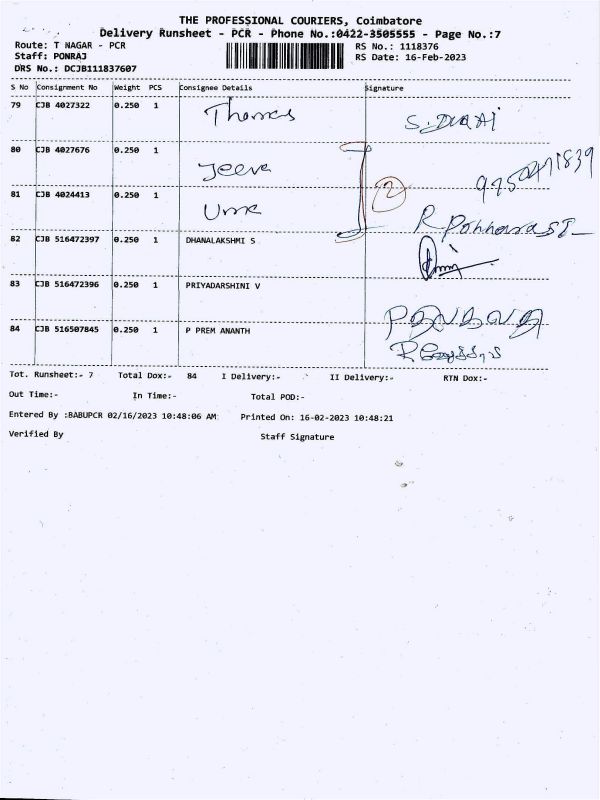 THE PROFESSIONAL COURIERS, Coimbatore
Delivery Runsheet - PCR - Phone No.:0422-3505555 - Page No.:7
Route: T NAGAR - PCR
RS No.: 1118376
Staff: PONRAJ
RS Date: 16-Feb-2023
DRS No.: DCJB111837607
S No Consignment No Weight PCS Consignee Details Signature
79 CJB 4027322 0.250 1 Thomas S. DURAI
80 CJB 4027676 0.250 1 Jeeva
2
81 CJB 4024413 0.250 1 Uma
82 CJB 516472397 0.250 1 DHANALAKSHMI S
83 CJB 516472396 0.250 1 PRIYADARSHINI V
84 CJB 516507845 0.250 1 P PREM ANANTH
Tot. Runsheet:- 7 Total Dox:- 84 I Delivery:- II Delivery:- RTN Dox:-
Out Time:- In Time:- Total POD:-
Entered By :BABUPCR 02/16/2023 10:48:06 AM Printed On: 16-02-2023 10:48:21
Verified By Staff Signature